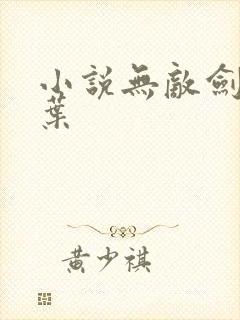 小說無敵劍
葉
黃少祺